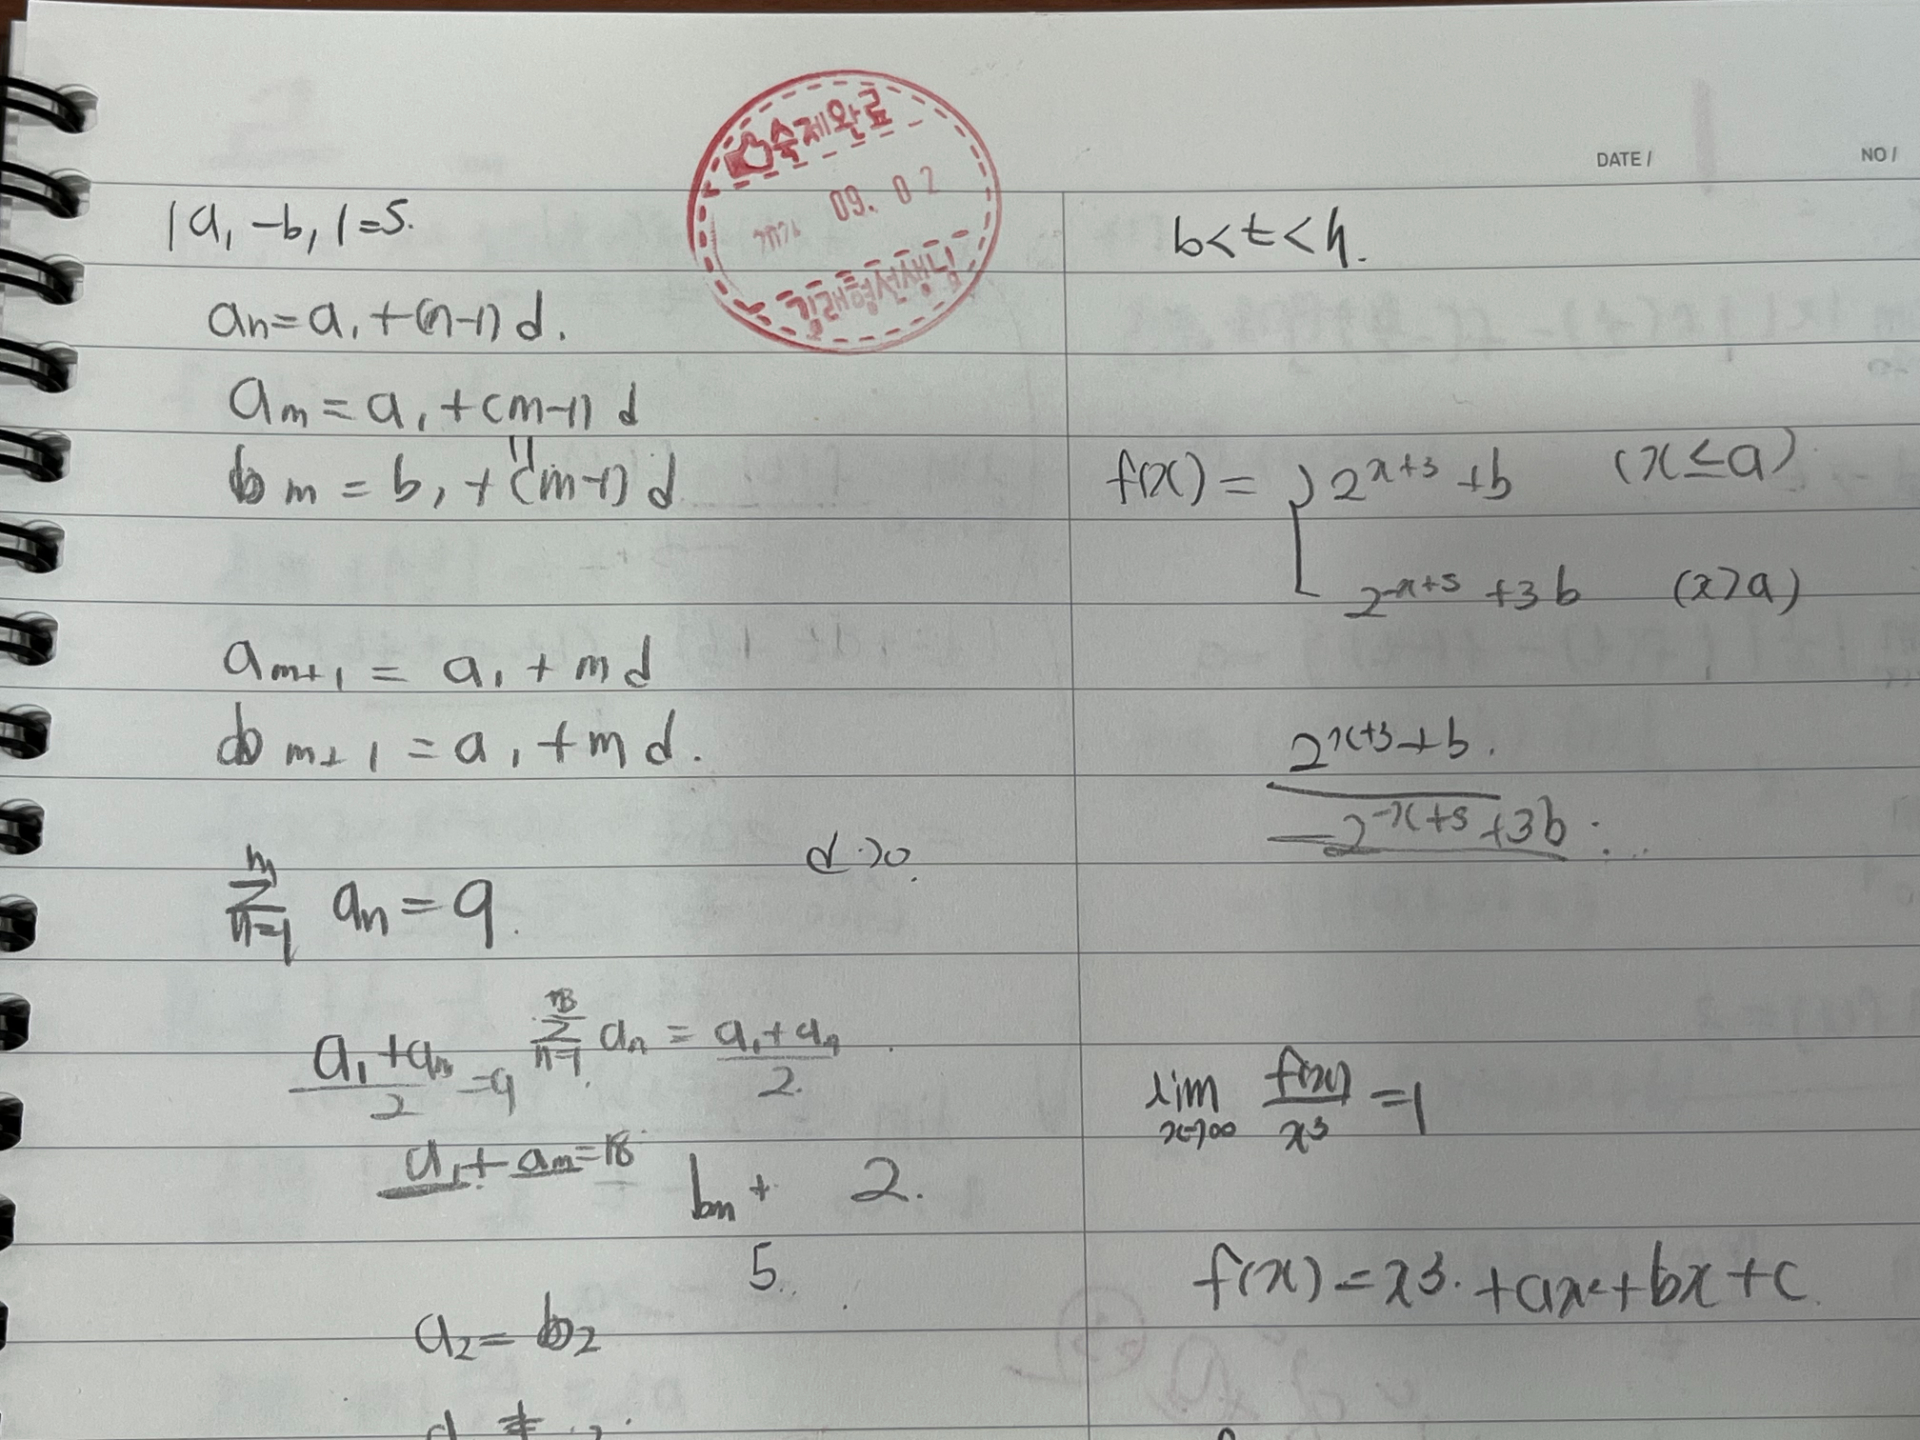 숙제완료
09. 02
김래형선생님
DATE /
NO /
|a₁ - b₁| = 5.
aₙ = a₁ + (n-1) d.
aₘ = a₁ + (m-1) d
bₘ = b₁ + (m-1) d
aₘ₊₁ = a₁ + m d
bₘ₊₁ = a₁ + m d.
d > 0.
∑ₙ₌₁ᵐ aₙ = 9.
(a₁ + aₘ)/2 = 9
∑ₙ₌₁ aₙ = (a₁ + a₉)/2.
a₁ + aₘ = 18
bₘ + 2.
5.
a₂ = b₂
d ≠
b < t < 4.
f(x) = { 2ˣ⁺³ + b (x ≤ a)
2⁻ˣ⁺⁵ + 3b (x > a)
2ˣ⁺³ + b.
- 2⁻ˣ⁺⁵ + 3b
lim x→∞ f(x)/x³ = 1
f(x) = x³ + ax² + bx + c